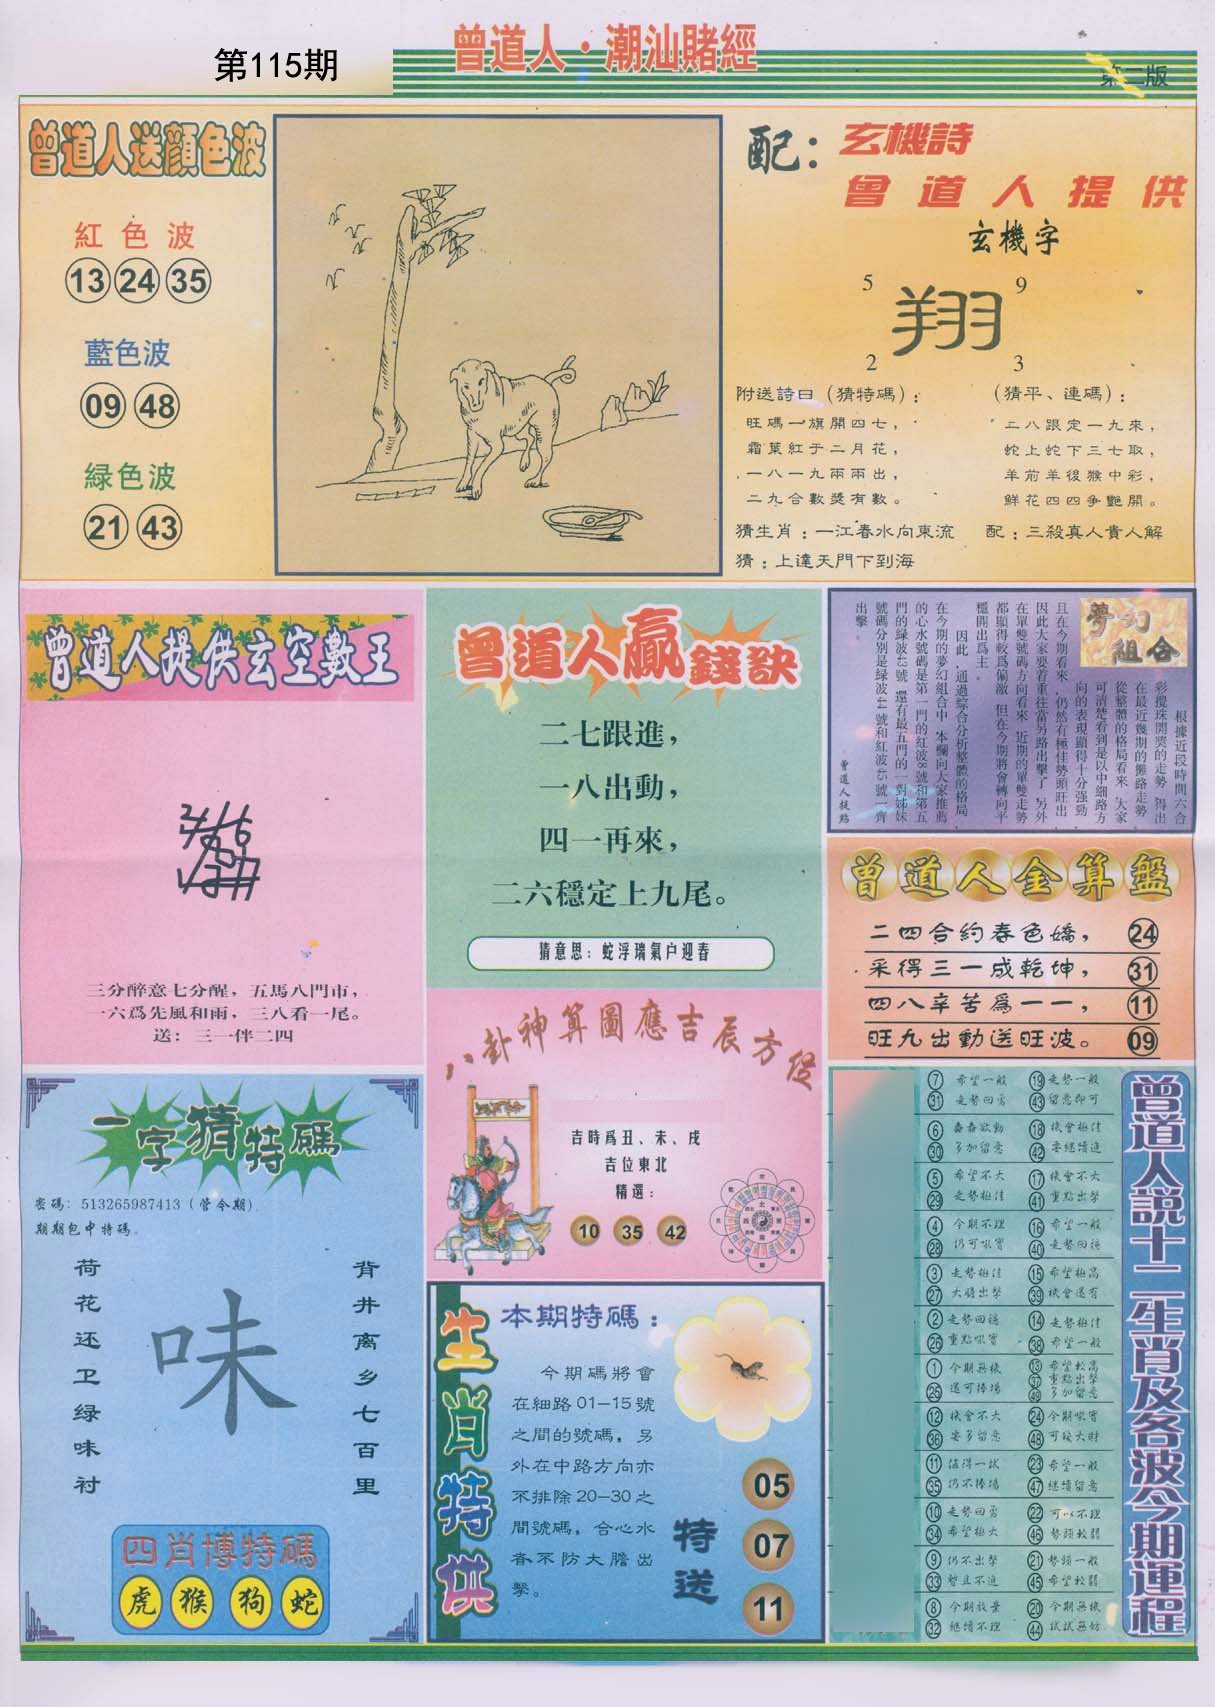 第115期
曾道人·潮汕賭經
第二版
曾道人送顏色波
紅色波
13 24 35
藍色波
09 48
緑色波
21 43
配：玄機詩
曾道人提供
玄機字
5 9
翔
2 3
附送詩曰（猜特碼）：
旺碼一旗開四七，
霜葉紅于二月花，
一八一九兩兩出，
二九合數獎有數。
（猜平、連碼）：
二八跟定一九來，
蛇上蛇下三七取，
羊前羊後猴中彩，
鮮花四四爭艷開。
猜生肖：一江春水向東流
配：三殺真人貴人解
猜：上達天門下到海
曾道人提供玄空數王
三分醉意七分醒，五馬八門市，
一六爲先風和雨，三八看一尾。
送：三一伴二四
曾道人贏錢訣
二七跟進，
一八出動，
四一再來，
二六穩定上九尾。
猜意思：蛇浮瑞氣户迎春
夢幻組合
根據近段時間六合
彩攪珠開獎的走勢，得出
在最近幾期的攤路走勢
從整體的格局看來，大家
可清楚看到是以中細路方
向的表現顯得十分强勁，
且在今期看來，仍然有種佳勢頭旺出，
因此大家要着重注當另路出擊了，另外
在單雙號碼方向看來，近期的單雙走勢
都顯得較爲偏激，但在今期將會轉向平
穩開出爲主。
因此，通過綜合分析整體的格局，
在今期的夢幻組合中，本欄向大家推薦
的心水號碼是第一門的紅波8號和第五
門的緑波43號，還有最五門的一對姊妹
號碼分别是緑波44號和紅波45號一齊
出擊。
曾道人提點
曾道人金算盤
二四合約春色嬌， 24
采得三一成乾坤， 31
四八辛苦爲一一， 11
旺九出動送旺波。 09
八卦神算圖應吉辰方位
吉時爲丑、未、戌
吉位東北
精選：
10 35 42
一字猜特碼
密碼：513265987413（管今期）
期期包中特碼。
荷花还卫绿味衬
味
背井离乡七百里
四肖博特碼
虎 猴 狗 蛇
生肖特供
本期特碼：
今期碼將會
在細路01—15號
之間的號碼，另
外在中路方向亦
不排除20—30之
間號碼，合心水
者不防大膽出
擊。
特送
05
07
11
曾道人說十二生肖及各波今期運程
7 希望一般 19 走勢一般
31 走勢回勇 43 留意即可
6 蠢蠢欲動 18 機會極佳
30 多加留意 42 要繼續追
5 希望不大 17 機會不大
29 走勢極佳 41 重點出擊
4 今期不理 16 希望一般
28 仍可吼實 40 走勢回穩
3 走勢極佳 15 希望極高
27 大膽出擊 39 機會還有
2 走勢回穩 14 走勢極佳
26 重點吼實 38 希望一般
1 今期無機 13 希望較高
25 還可捧場 37 重點出擊
49 多加留意
12 機會不大 24 今期吼實
36 要多留意 48 可發大財
11 值得一試 23 希望一般
35 仍不捧場 47 繼續留意
10 走勢回勇 22 可以不理
34 希望極大 46 勢頭較弱
9 仍不出擊 21 勢頭一般
33 暫且不追 45 希望較弱
8 今期放棄 20 今期無機
32 繼續不理 44 試試無妨